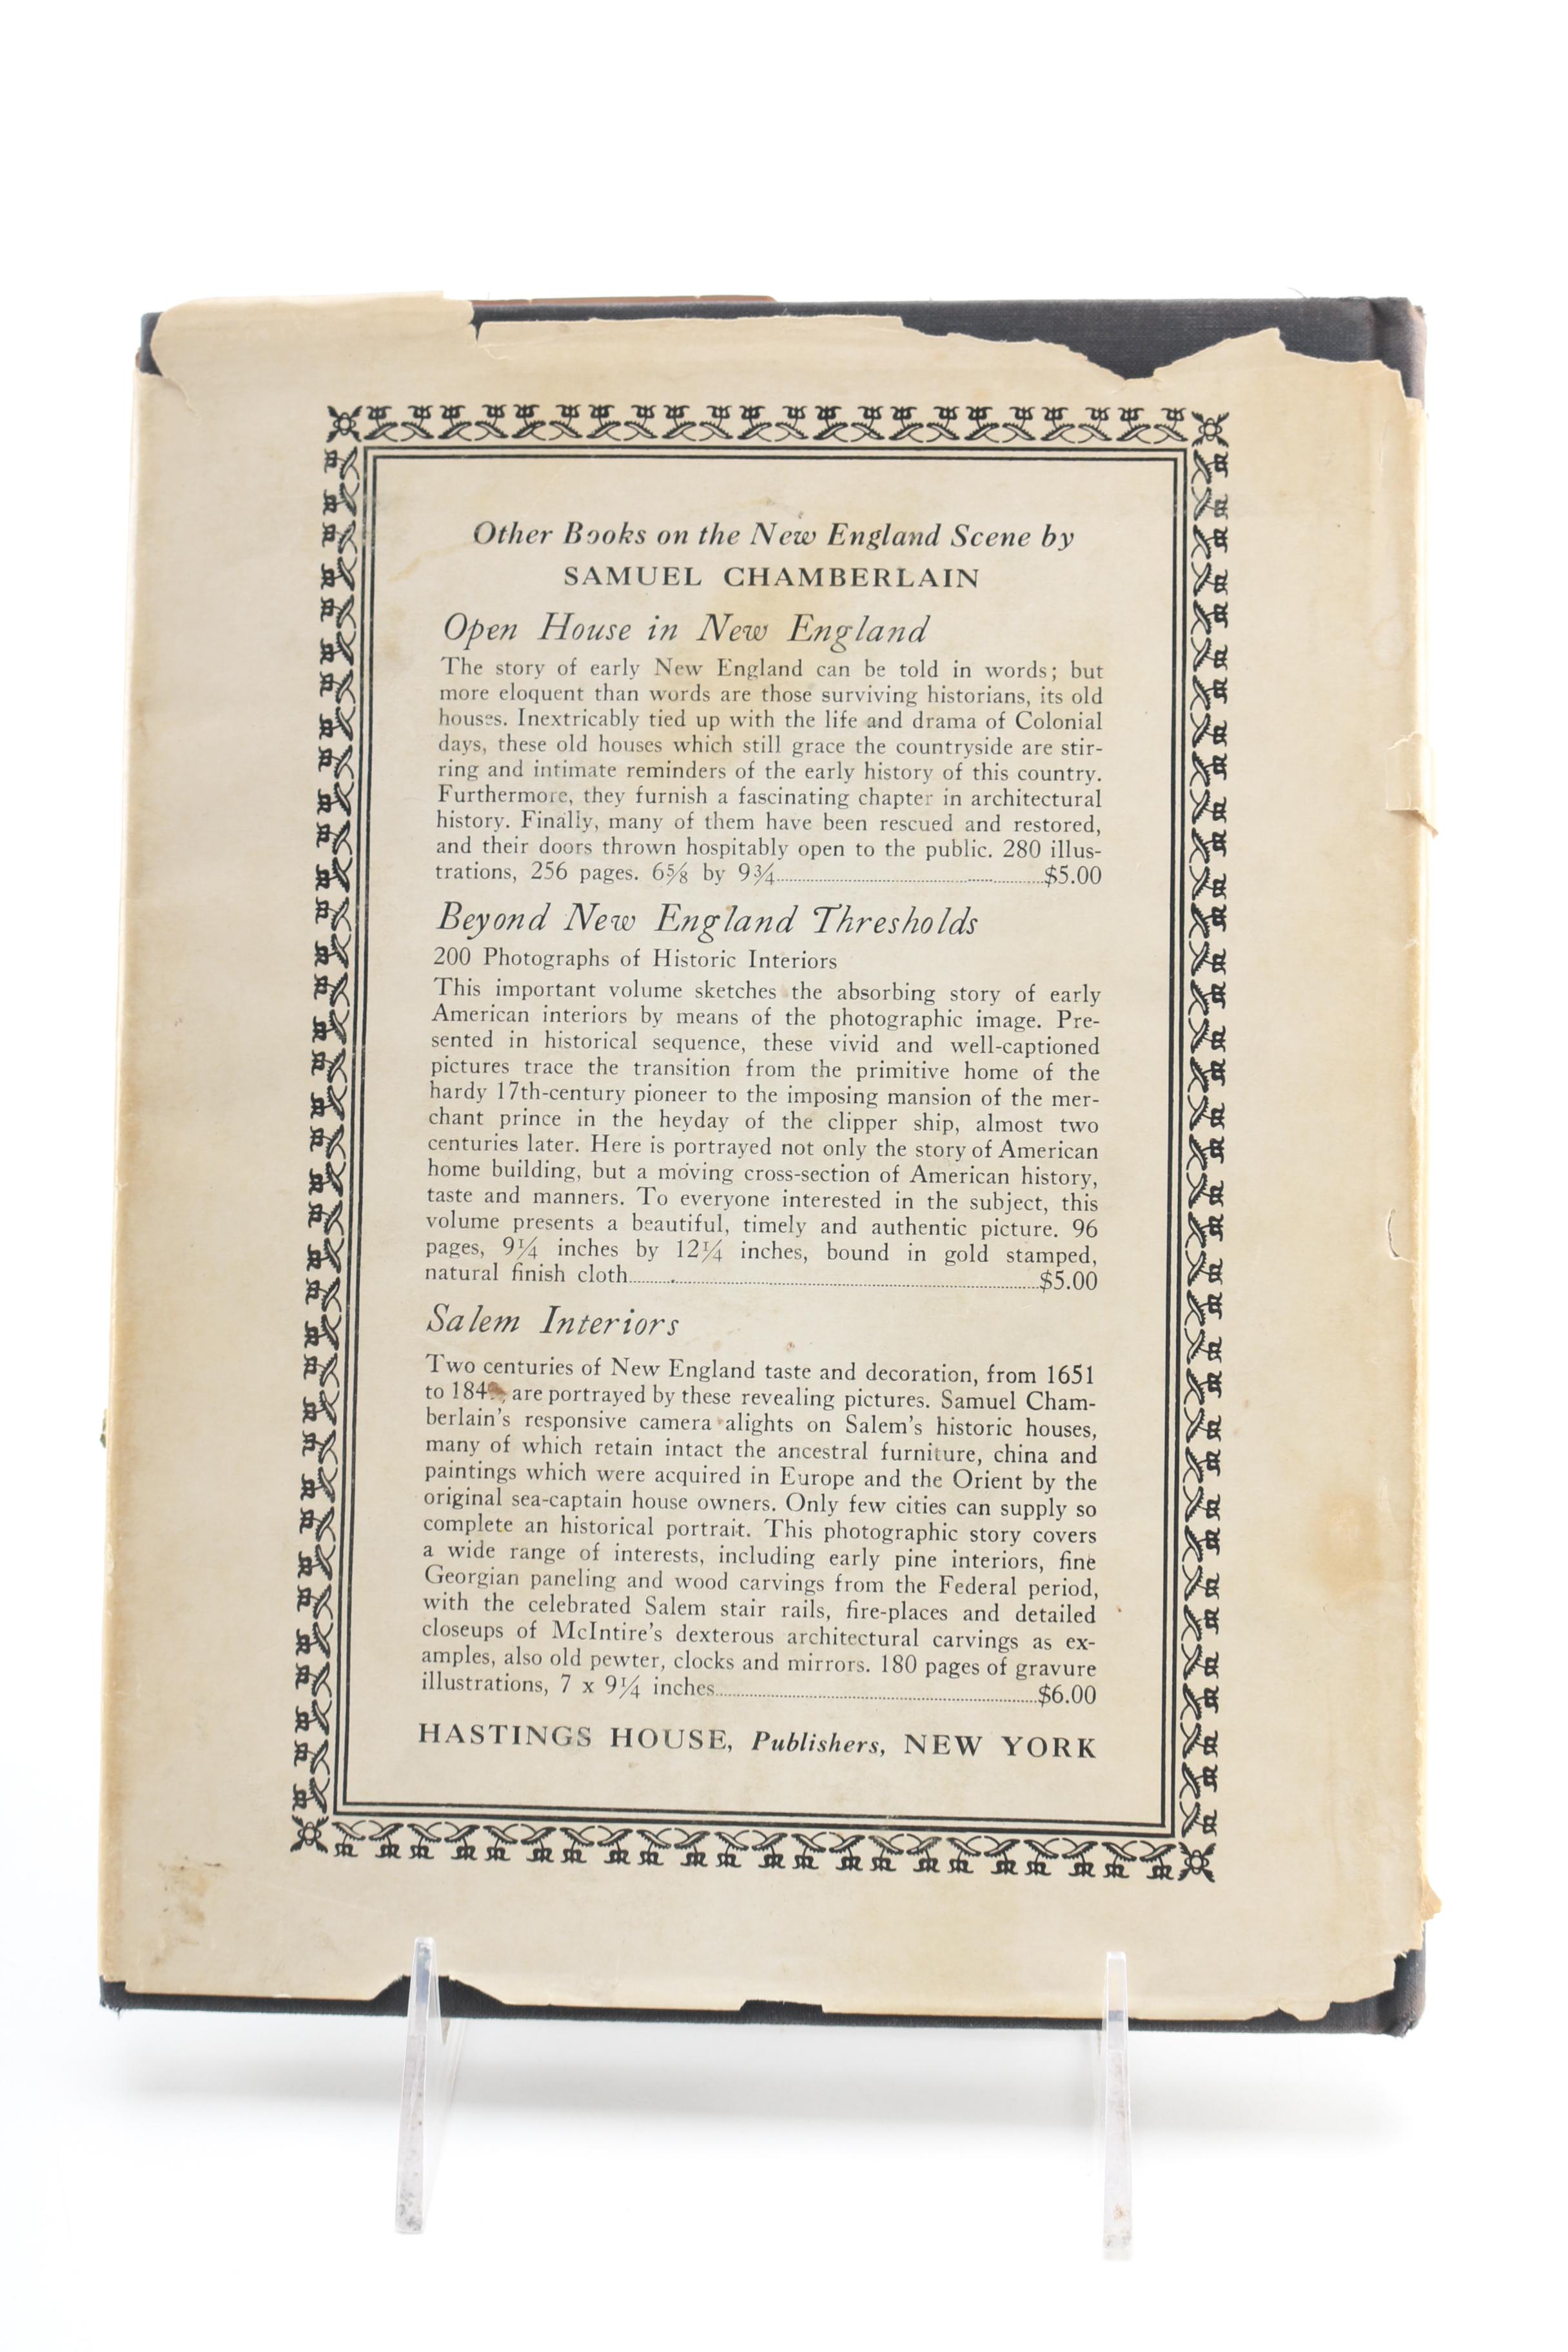 Other Books on the New England Scene by
SAMUEL CHAMBERLAIN
Open House in New England
The story of early New England can be told in words; but
more eloquent than words are those surviving historians, its old
houses. Inextricably tied up with the life and drama of Colonial
days, these old houses which still grace the countryside are stir-
ring and intimate reminders of the early history of this country.
Furthermore, they furnish a fascinating chapter in architectural
history. Finally, many of them have been rescued and restored,
and their doors thrown hospitably open to the public. 280 illus-
trations, 256 pages. 6⅝ by 9¾ $5.00
Beyond New England Thresholds
200 Photographs of Historic Interiors
This important volume sketches the absorbing story of early
American interiors by means of the photographic image. Pre-
sented in historical sequence, these vivid and well-captioned
pictures trace the transition from the primitive home of the
hardy 17th-century pioneer to the imposing mansion of the mer-
chant prince in the heyday of the clipper ship, almost two
centuries later. Here is portrayed not only the story of American
home building, but a moving cross-section of American history,
taste and manners. To everyone interested in the subject, this
volume presents a beautiful, timely and authentic picture. 96
pages, 9¼ inches by 12¼ inches, bound in gold stamped,
natural finish cloth $5.00
Salem Interiors
Two centuries of New England taste and decoration, from 1651
to are portrayed by these revealing pictures. Samuel Cham-
berlain's responsive camera alights on Salem's historic houses,
many of which retain intact the ancestral furniture, china and
paintings which were acquired in Europe and the Orient by the
original sea-captain house owners. Only few cities can supply so
complete an historical portrait. This photographic story covers
a wide range of interests, including early pine interiors, fine
Georgian paneling and wood carvings from the Federal period,
with the celebrated Salem stair rails, fire-places and detailed
closeups of McIntire's dexterous architectural carvings as ex-
amples, also old pewter, clocks and mirrors. 180 pages of gravure
illustrations, 7 x 9¼ inches $6.00
HASTINGS HOUSE, Publishers, NEW YORK